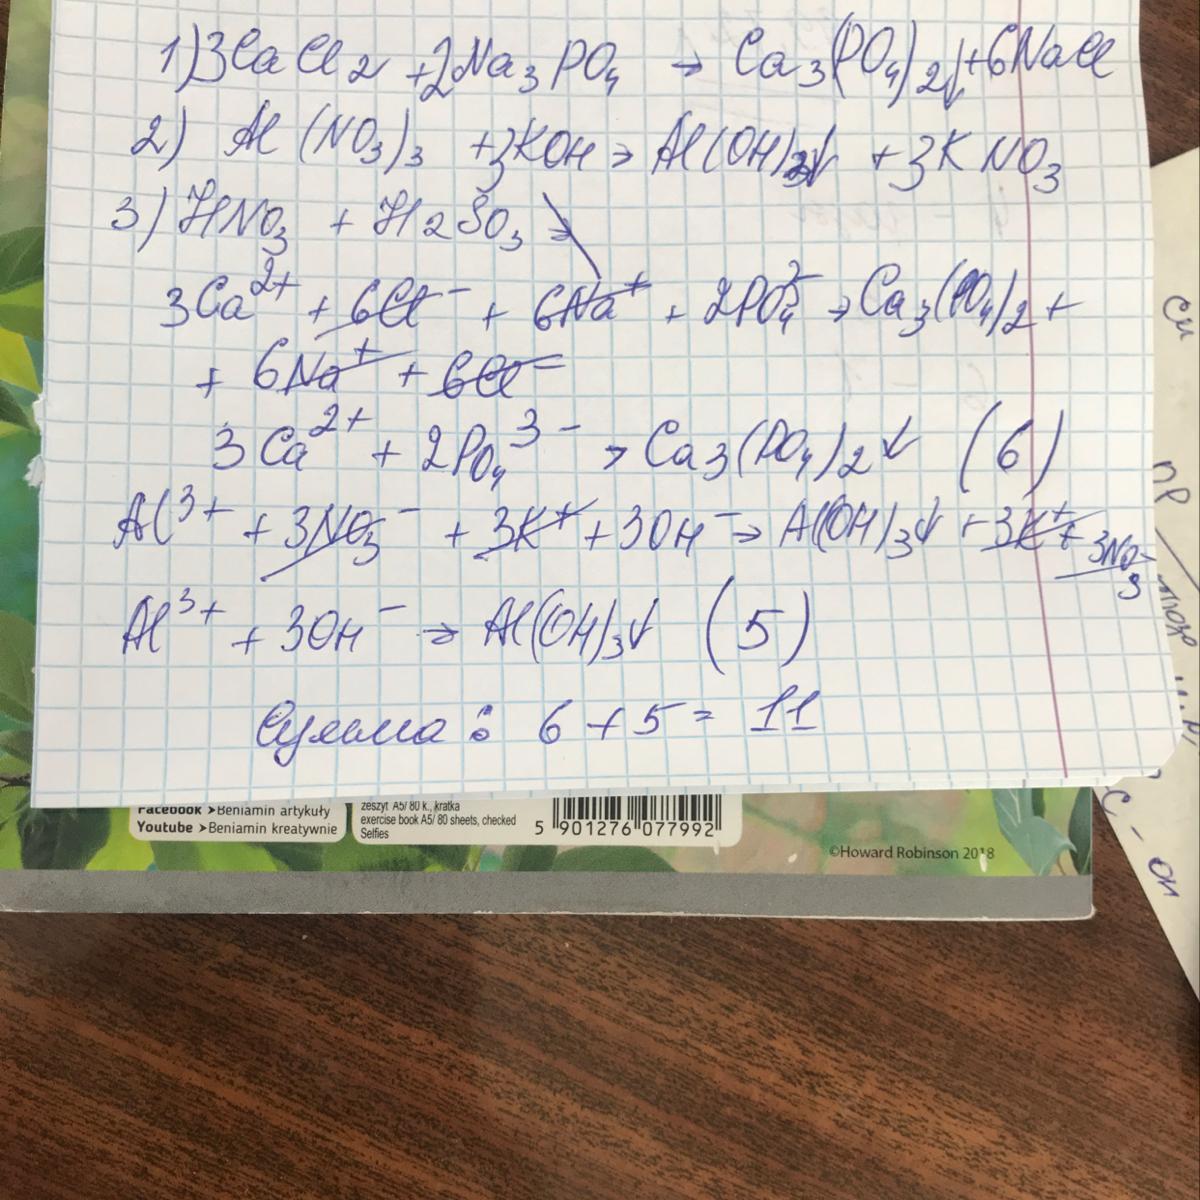 1) 3CaCl2 + 2Na3PO4 → Ca3(PO4)2↓ + 6NaCl
2) Al(NO3)3 + 3KOH → Al(OH)3↓ + 3KNO3
3) HNO3 + H2SO3 →
3Ca²⁺ + 6Cl⁻ + 6Na⁺ + 2PO4³⁻ → Ca3(PO4)2 +
+ 6Na⁺ + 6Cl⁻
3Ca²⁺ + 2PO4³⁻ → Ca3(PO4)2↓ (6)
Al³⁺ + 3NO3⁻ + 3K⁺ + 3OH⁻ → Al(OH)3↓ + 3K⁺ + 3NO3⁻
Al³⁺ + 3OH⁻ → Al(OH)3↓ (5)
Сумма: 6 + 5 = 11
Facebook ➤Beniamin artykuły
Youtube ➤Beniamin kreatywnie
zeszyt A5/ 80 k., kratka
exercise book A5/ 80 sheets, checked
Selfies
5 901276 077992
©Howard Robinson 2018